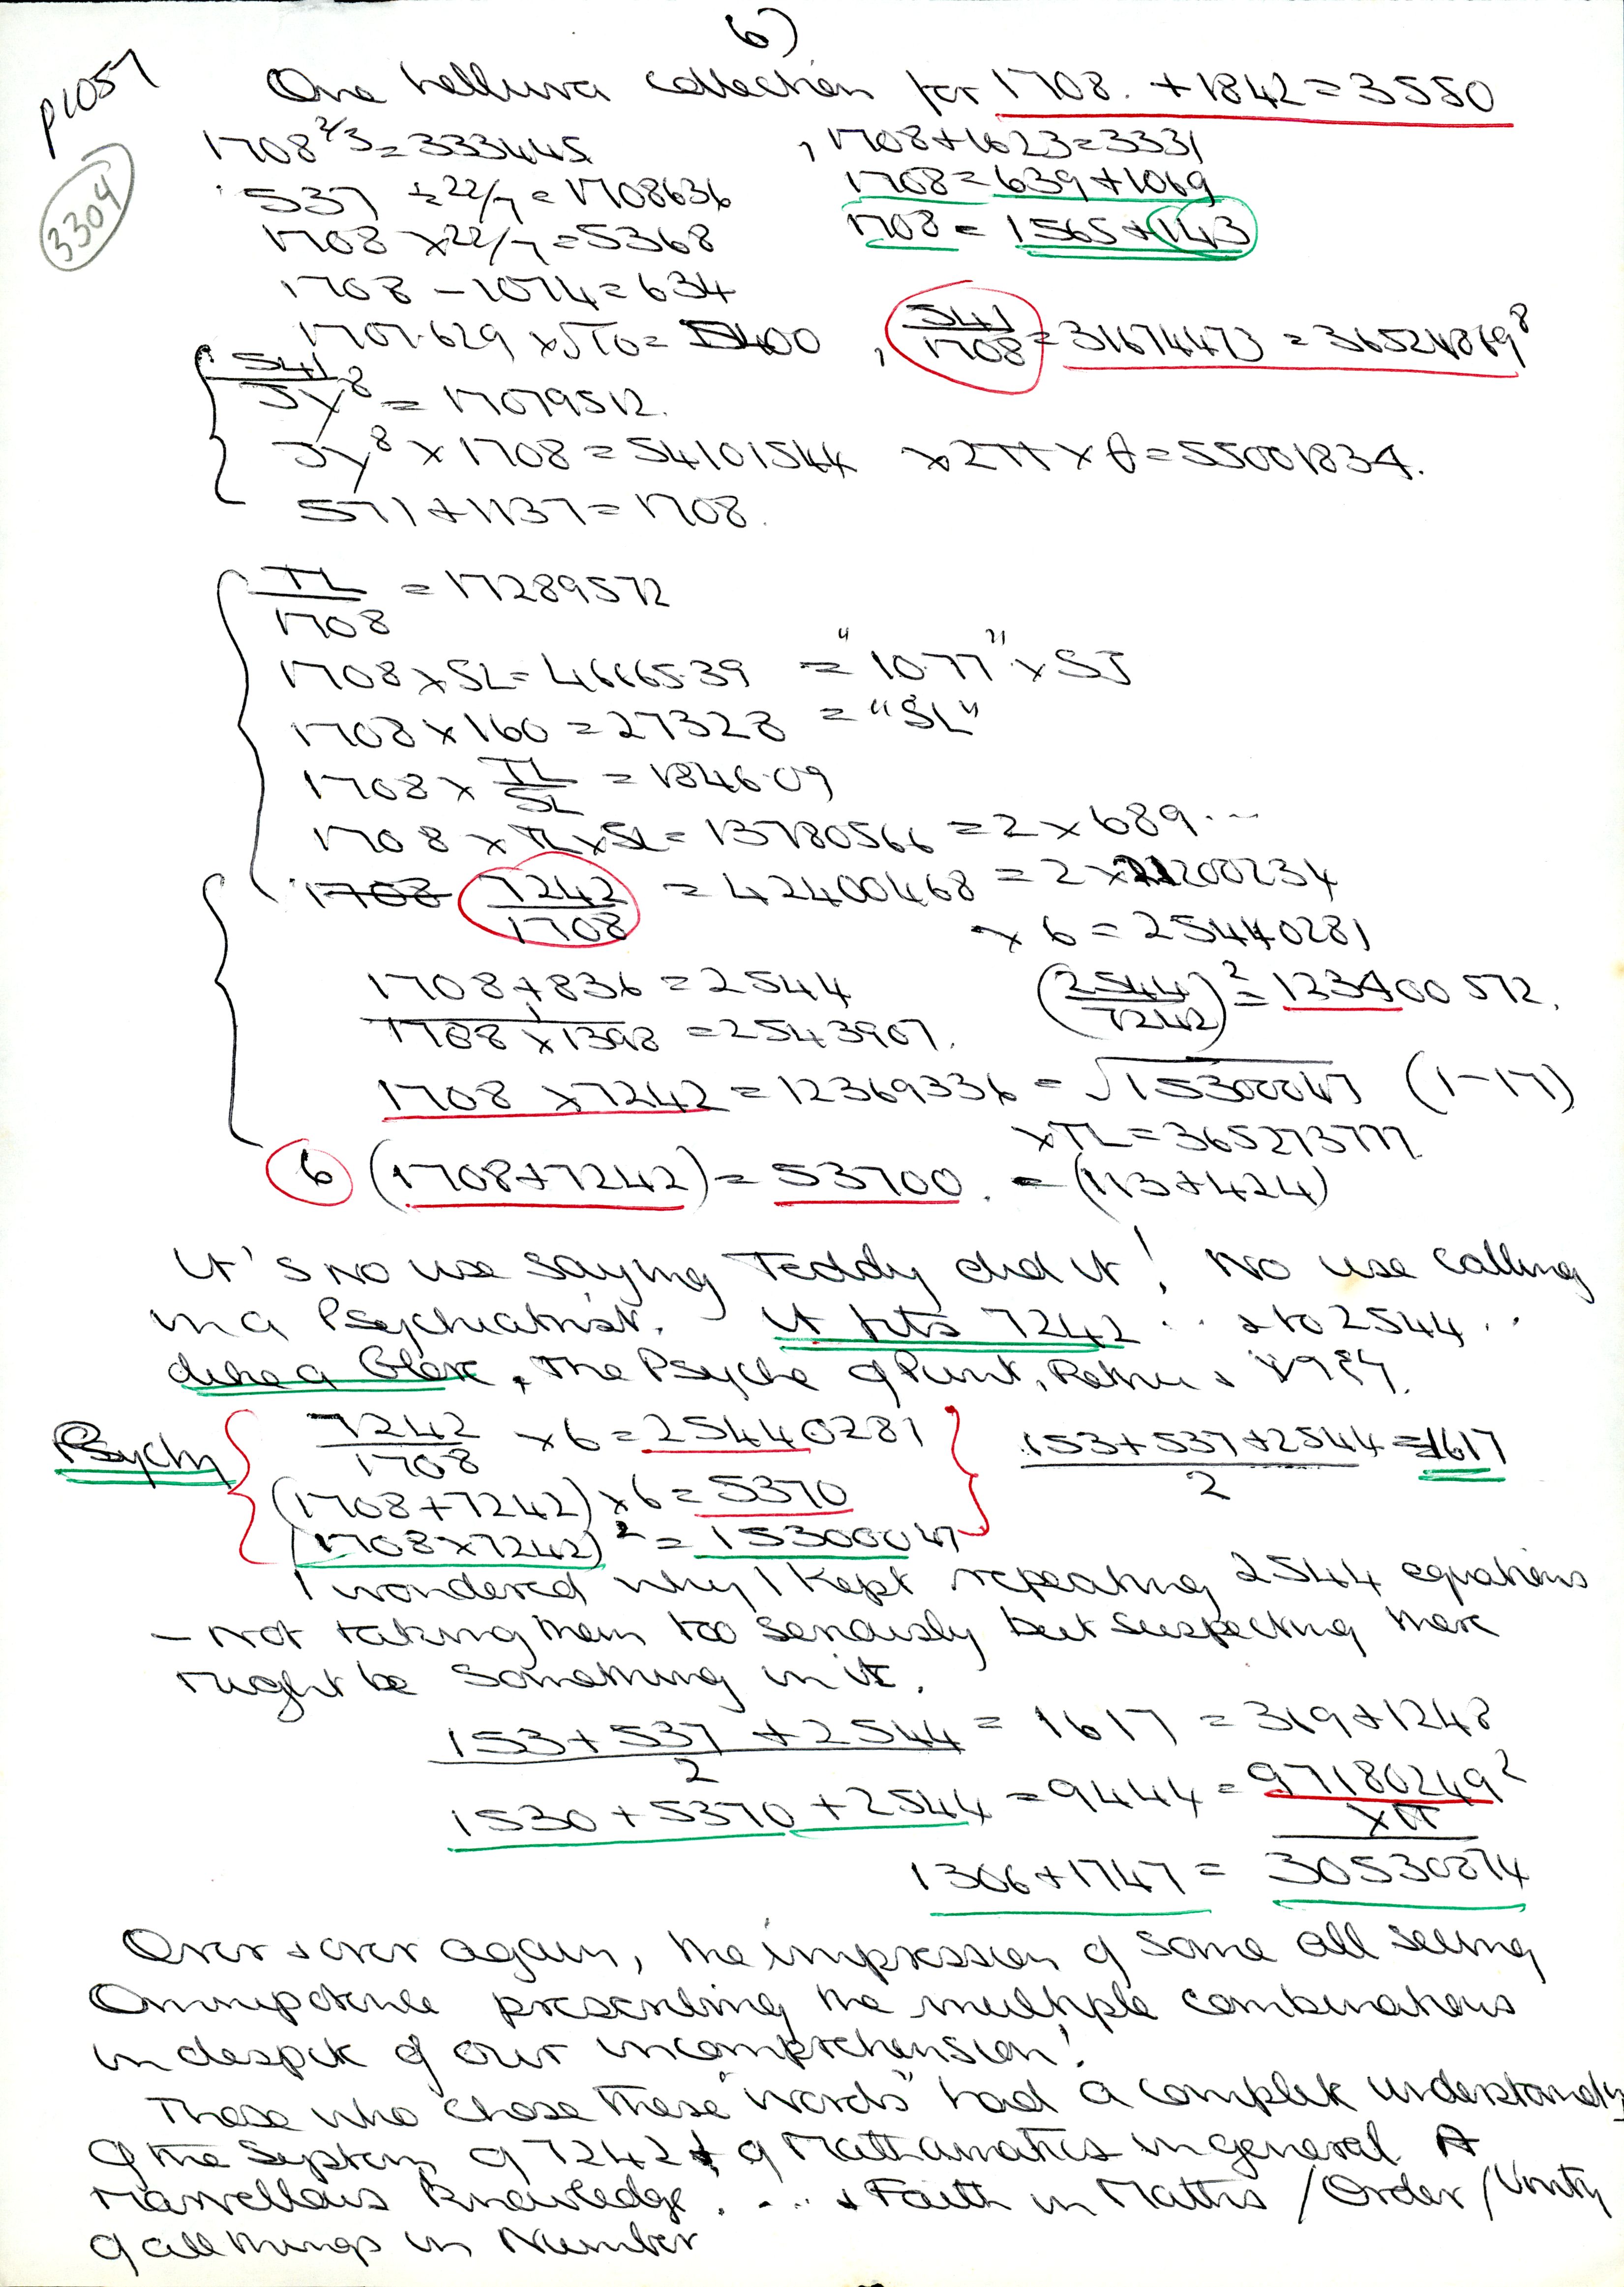 6)
p1057
3304
One helluva collection for 1708. + 1842 = 3550
1708^2/3 = 333445 , 1708 + 1623 = 3331
537 ÷ 22/7 = 1708636 1708 = 639 + 1069
1708 × 22/7 = 5368 1708 = 1565 + 143
1708 - 1074 = 634
1707.629 × √10 = 5400 , 541/1708 = 31674473 = 36524869^8
541/JY^8 = 17079512.
JY^8 × 1708 = 54101544 × 2π × θ = 55001834.
571 + 1137 = 1708.
TL/1708 = 17289572
1708 × SL = 4666539 = "10.77" × SJ
1708 × 160 = 27328 = "SL"
1708 × TL/SL = 1846.09
1708 × TL × SL = 13780566 = 2 × 689...
1708 7242/1708 = 42400468 = 2 × 21200234
× 6 = 25440281
1708 + 836 = 2544 (2544/7242)^2 = 123400572.
1708 × 1398 = 2543907.
1708 × 7242 = 12369336 = √15300047 (1-17)
× TL = 365273777
6 (1708 + 7242) = 53700. = (113 + 424)
It's no use saying Teddy did it! No use calling
in a Psychiatrist. It fits 7242 .. & to 2544 ..
like a Glove, The Psyche of Punt, Rethu &
Psych 7242/1708 × 6 = 25440281 153 + 537 + 2544/2 = 1617
(1708 + 7242) × 6 = 5370
(1708 × 7242)^2 = 15300047
I wondered why I kept repeating 2544 equations
- not taking them too seriously but suspecting there
might be something in it.
153 + 537 + 2544/2 = 1617 = 369 + 1248
1530 + 5370 + 2544 = 9444 = 97180249^2
× π
1306 + 1747 = 30530874
Over & over again, the impression of some all seeing
Omnipotence presenting the multiple combinations
in despite of our incomprehension!
Those who chose these "words" had a complete understanding
of the System of 7242 & of Mathamatics in general. A
Marvellous knowledge. ... & Faith in Maths / Order / Unity
of all things in Number